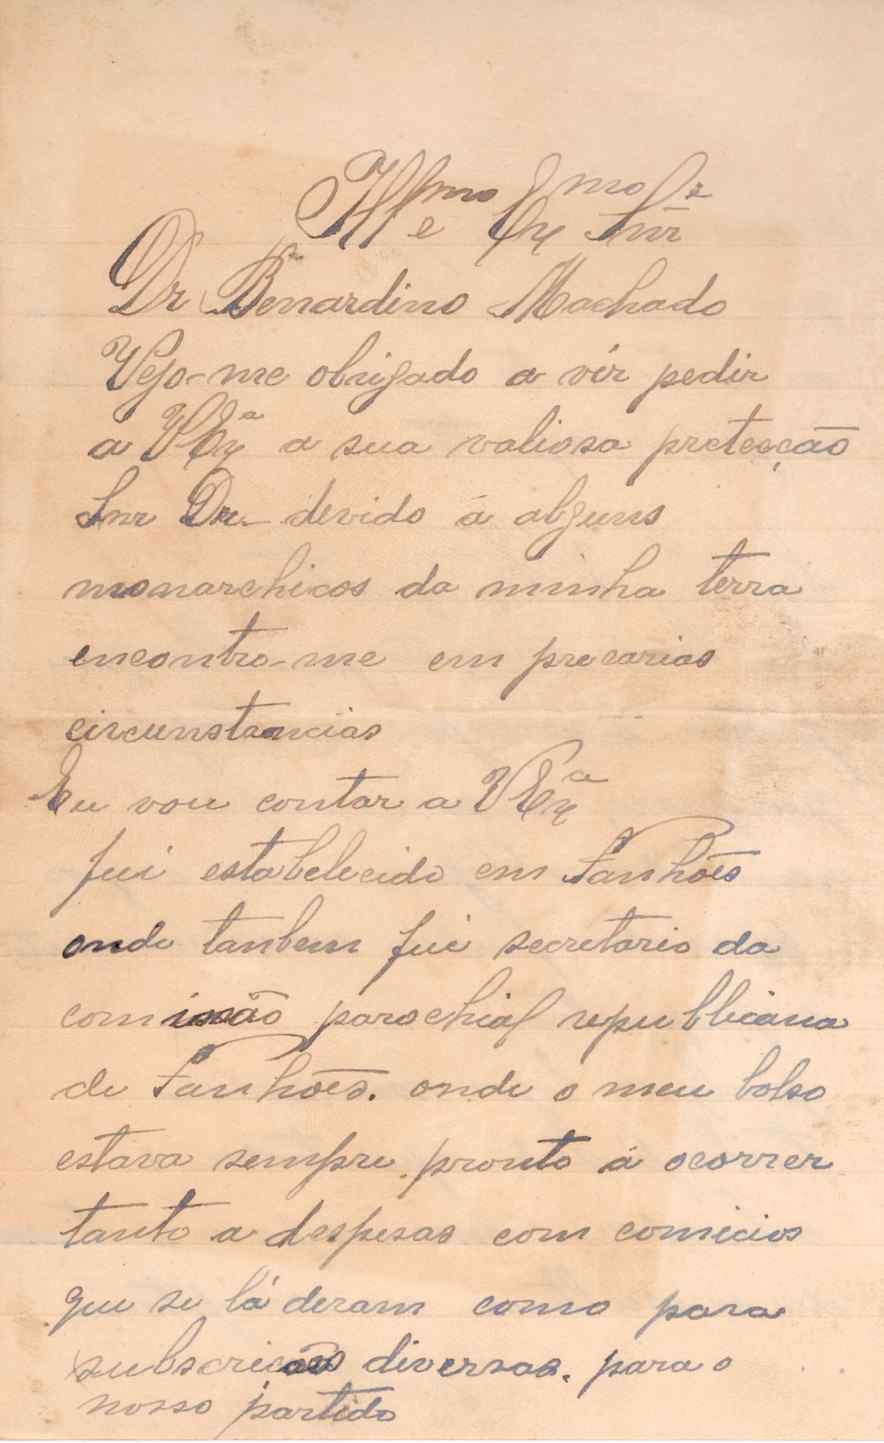 Illmo e Exmo Snr
Dr Benardino Machado
Vejo-me obrigado a vir pedir
a V Exª a sua valiosa pretecção
Snr Dr. devido á alguns
monarchicos da minha terra
encontro-me em precarias
circunstancias
Eu vou contar a V Exª
fui estabelecido em Fanhões
onde tanbem fui secretario da
comissão parochial republicana
de Fanhões. onde o meu bolso
estava sempre pronto á ocorrer
tanto a despesas com comicios
que se lá deram como para
subscricões diversas. para o
nosso partido